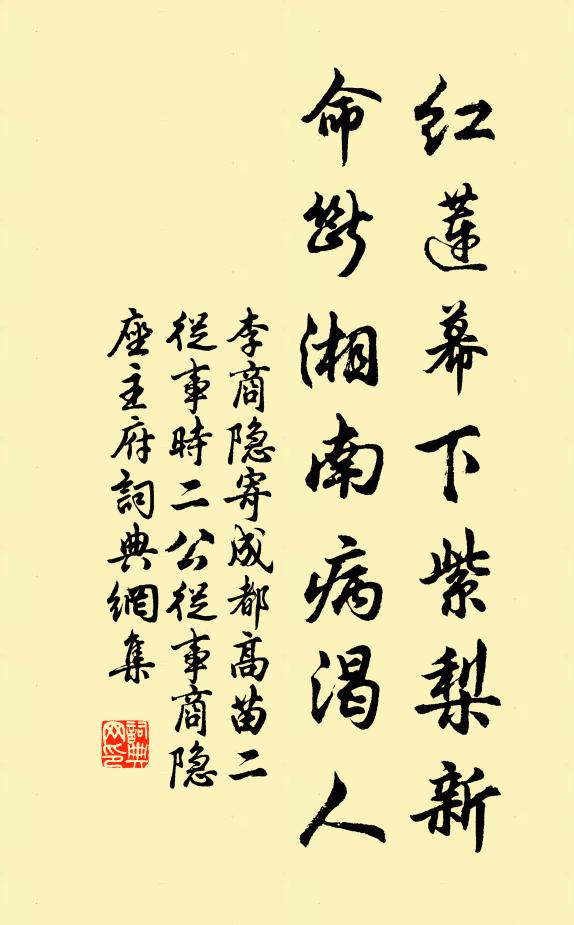 红莲幕下紫梨新
命断湘南病渴人
李商隐寄成都高苗二
從事時二公從事商隐
座主府詞典網集
詞典網印